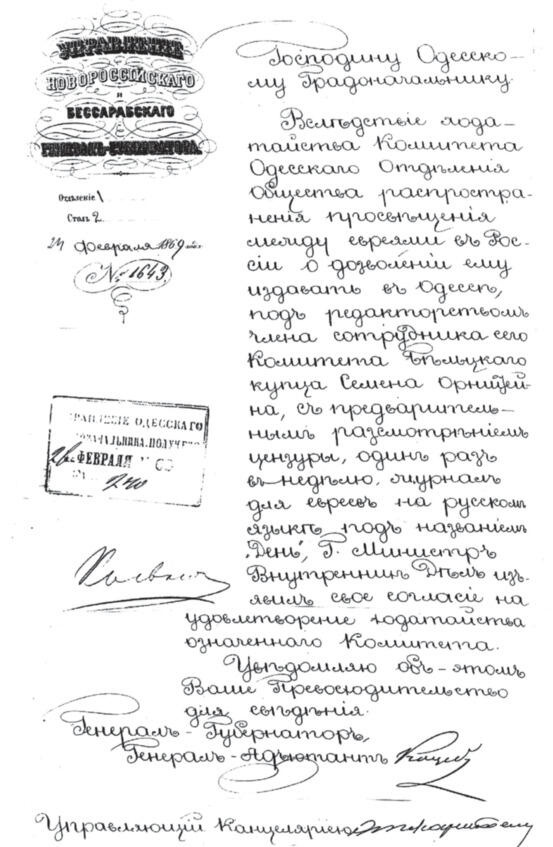 УПРАВЛЕНІЕ
НОВОРОССІЙСКАГО
и
БЕССАРАБСКАГО
ГЕНЕРАЛЪ-ГУБЕРНАТОРА.
Отдѣленіе 1
Столъ 2
24 февраля 1869 года
№ 1643
Господину Одесско-
му Градоначальнику.
Вслѣдствіе хода-
тайства Комитета
Одесскаго Отдѣленія
Общества распростра-
ненія просвѣщенія
между евреями въ Рос-
сіи о дозволеніи ему
издавать въ Одессѣ,
подъ редакторствомъ
члена сотрудника сего
Комитета Бѣльцкаго
купца Семена Орнштей-
на, съ предваритель-
нымъ разсмотрѣніемъ
цензуры, одинъ разъ
въ недѣлю, журналъ
для евреевъ на русскомъ
языкѣ подъ названіемъ
„День“, Г. Министръ
Внутреннихъ Дѣлъ изъ-
явилъ свое согласіе на
удовлетвореніе ходатайства
означеннаго Комитета.
Увѣдомляю объ этомъ
Ваше Превосходительство
для свѣдѣнія.
Генералъ-Губернаторъ,
Генералъ-Адъютантъ Коцебу
Управляющій Канцеляріею
ОДЕССКАГО
ПОЛУЧЕНО
26 ФЕВРАЛЯ
240